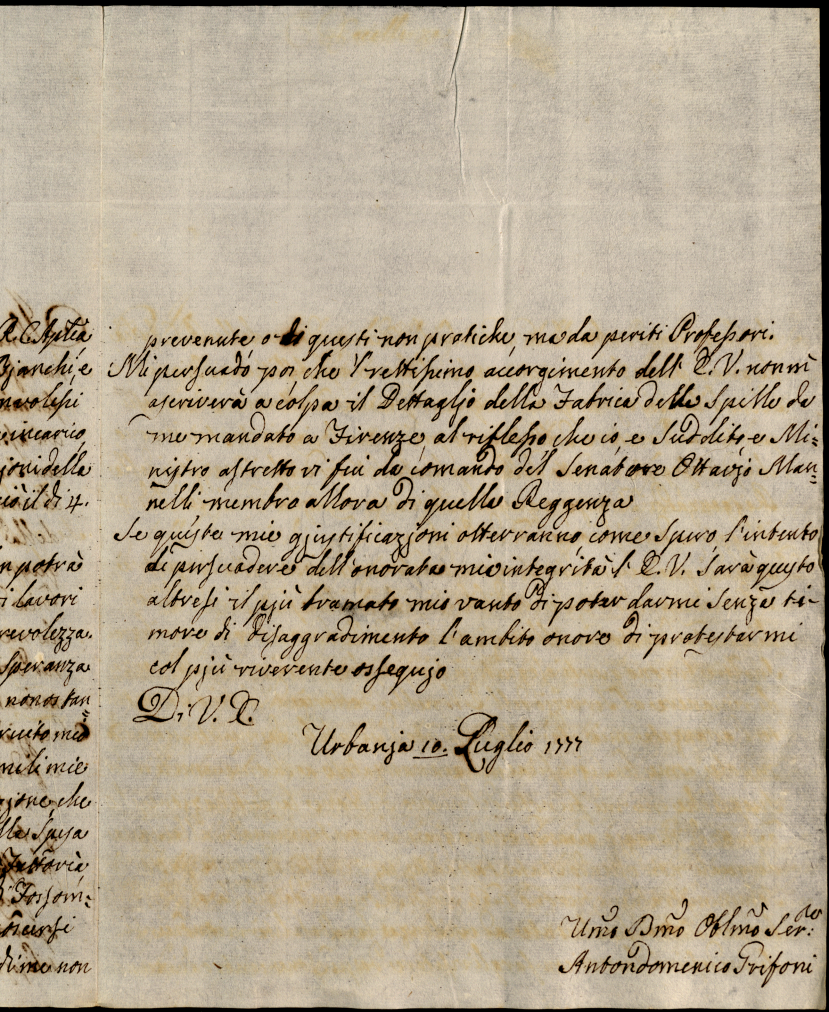 R. C. Aplca
Bjanchi, e
incarico
joni della
il di 4.
n potrà
i lavori
revolezza.
speranza
nonostan=
mili mie
jone che
lla Spesa
Fattoria
di me non
prevenute o di questi non pratiche, ma da periti Professori.
Mi persuado poi che l'rettissimo accorgimento dell' E. V. non m'
ascriverà a colpa il Dettaglio della Fabrica delle Spille da
me mandato a Firenze al riflesso che io e Suddito e Mi=
nistro astretto vi fui da comando del Senatore Ottavio Man=
nelli membro allora di quella Reggenza
Se queste mie gjustificazjoni otterranno come spero l'intento
di persuadere dell'onorata mia integrità l' E. V. sarà questo
altresi il pjù bramato mio vanto di poter darmi senza ti-
more di disaggradimento l'ambito onore di protestarmi
col pjù riverente ossequjo
Di V. E.
Urbanja 10. Luglio 1777
Umo Dmo Oblmo Serre:
Antondomenico Grifoni